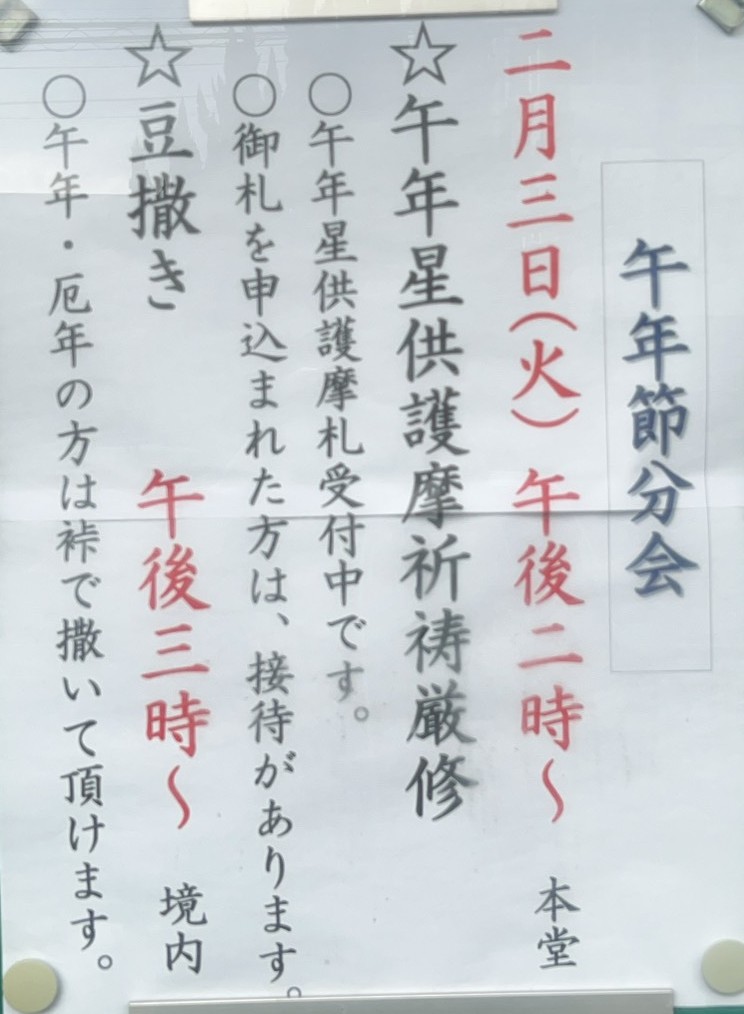 午年節分会
二月三日(火) 午後二時～ 本堂
☆午年星供護摩祈祷厳修
○午年星供護摩札受付中です。
○御札を申込まれた方は、接待があります。
☆豆撒き 午後三時～ 境内
○午年・厄年の方は裃で撒いて頂けます。